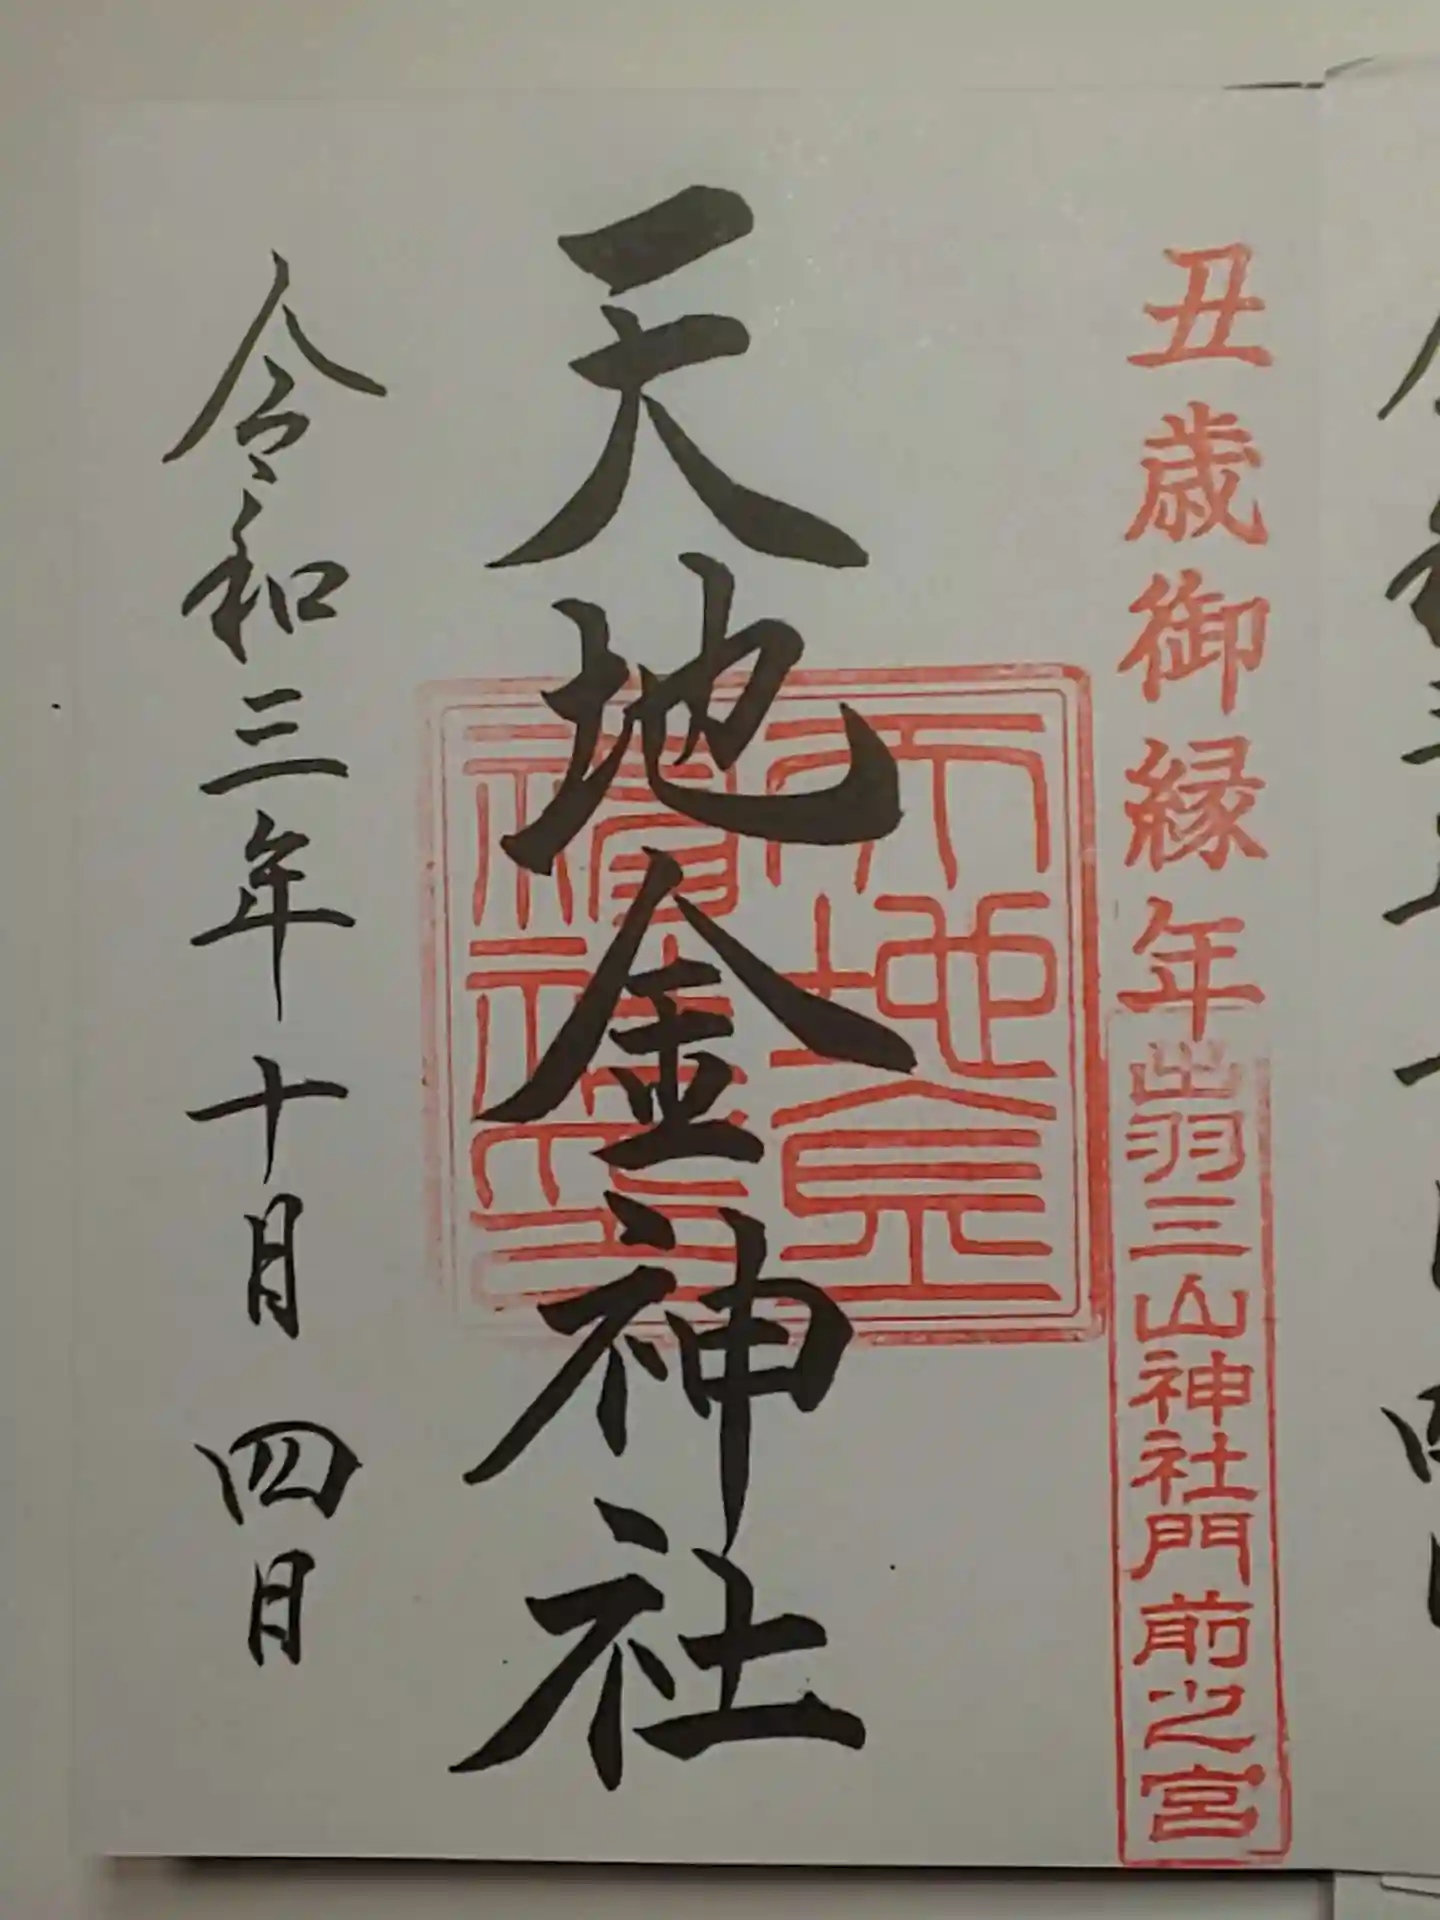 丑歳御縁年
出羽三山神社門前之宮
天地金神社
令和三年十月四日